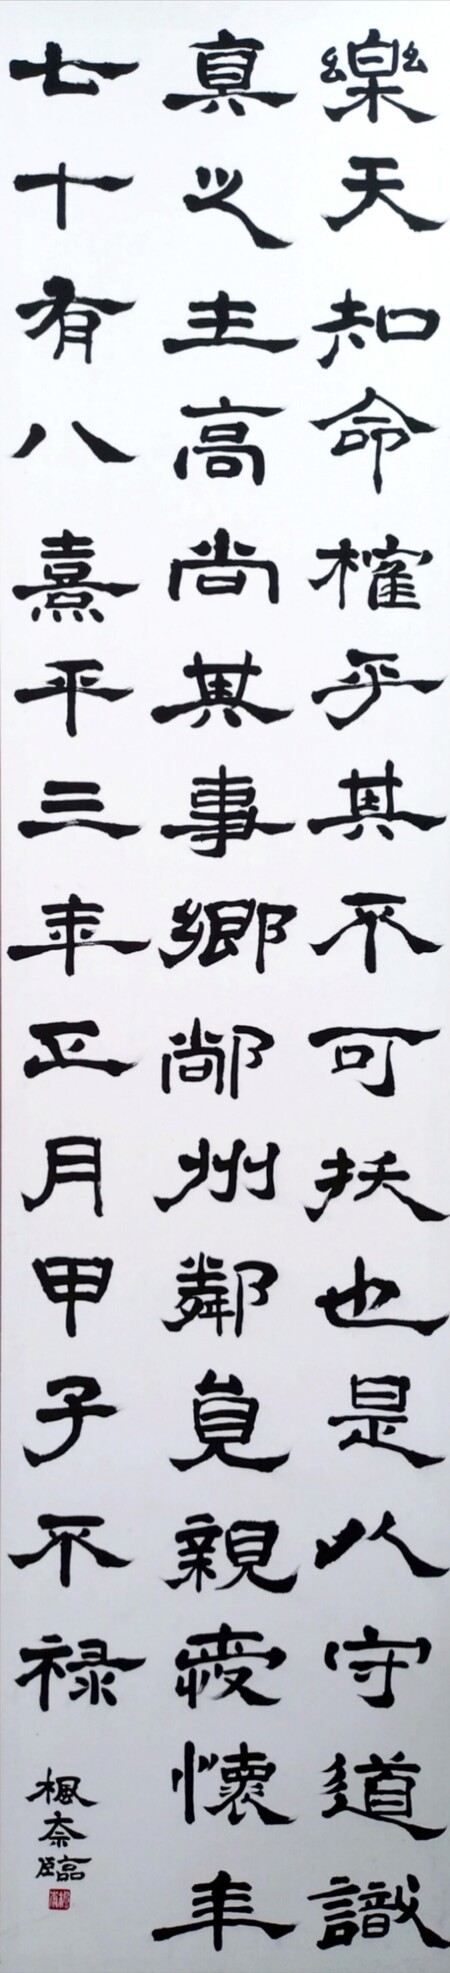 樂天知命榷乎其不可拔也是以守道識
真之主高尚其事鄉䣊州鄰見親愛懷年
七十有八熹平三年正月甲子不祿
楓奈臨